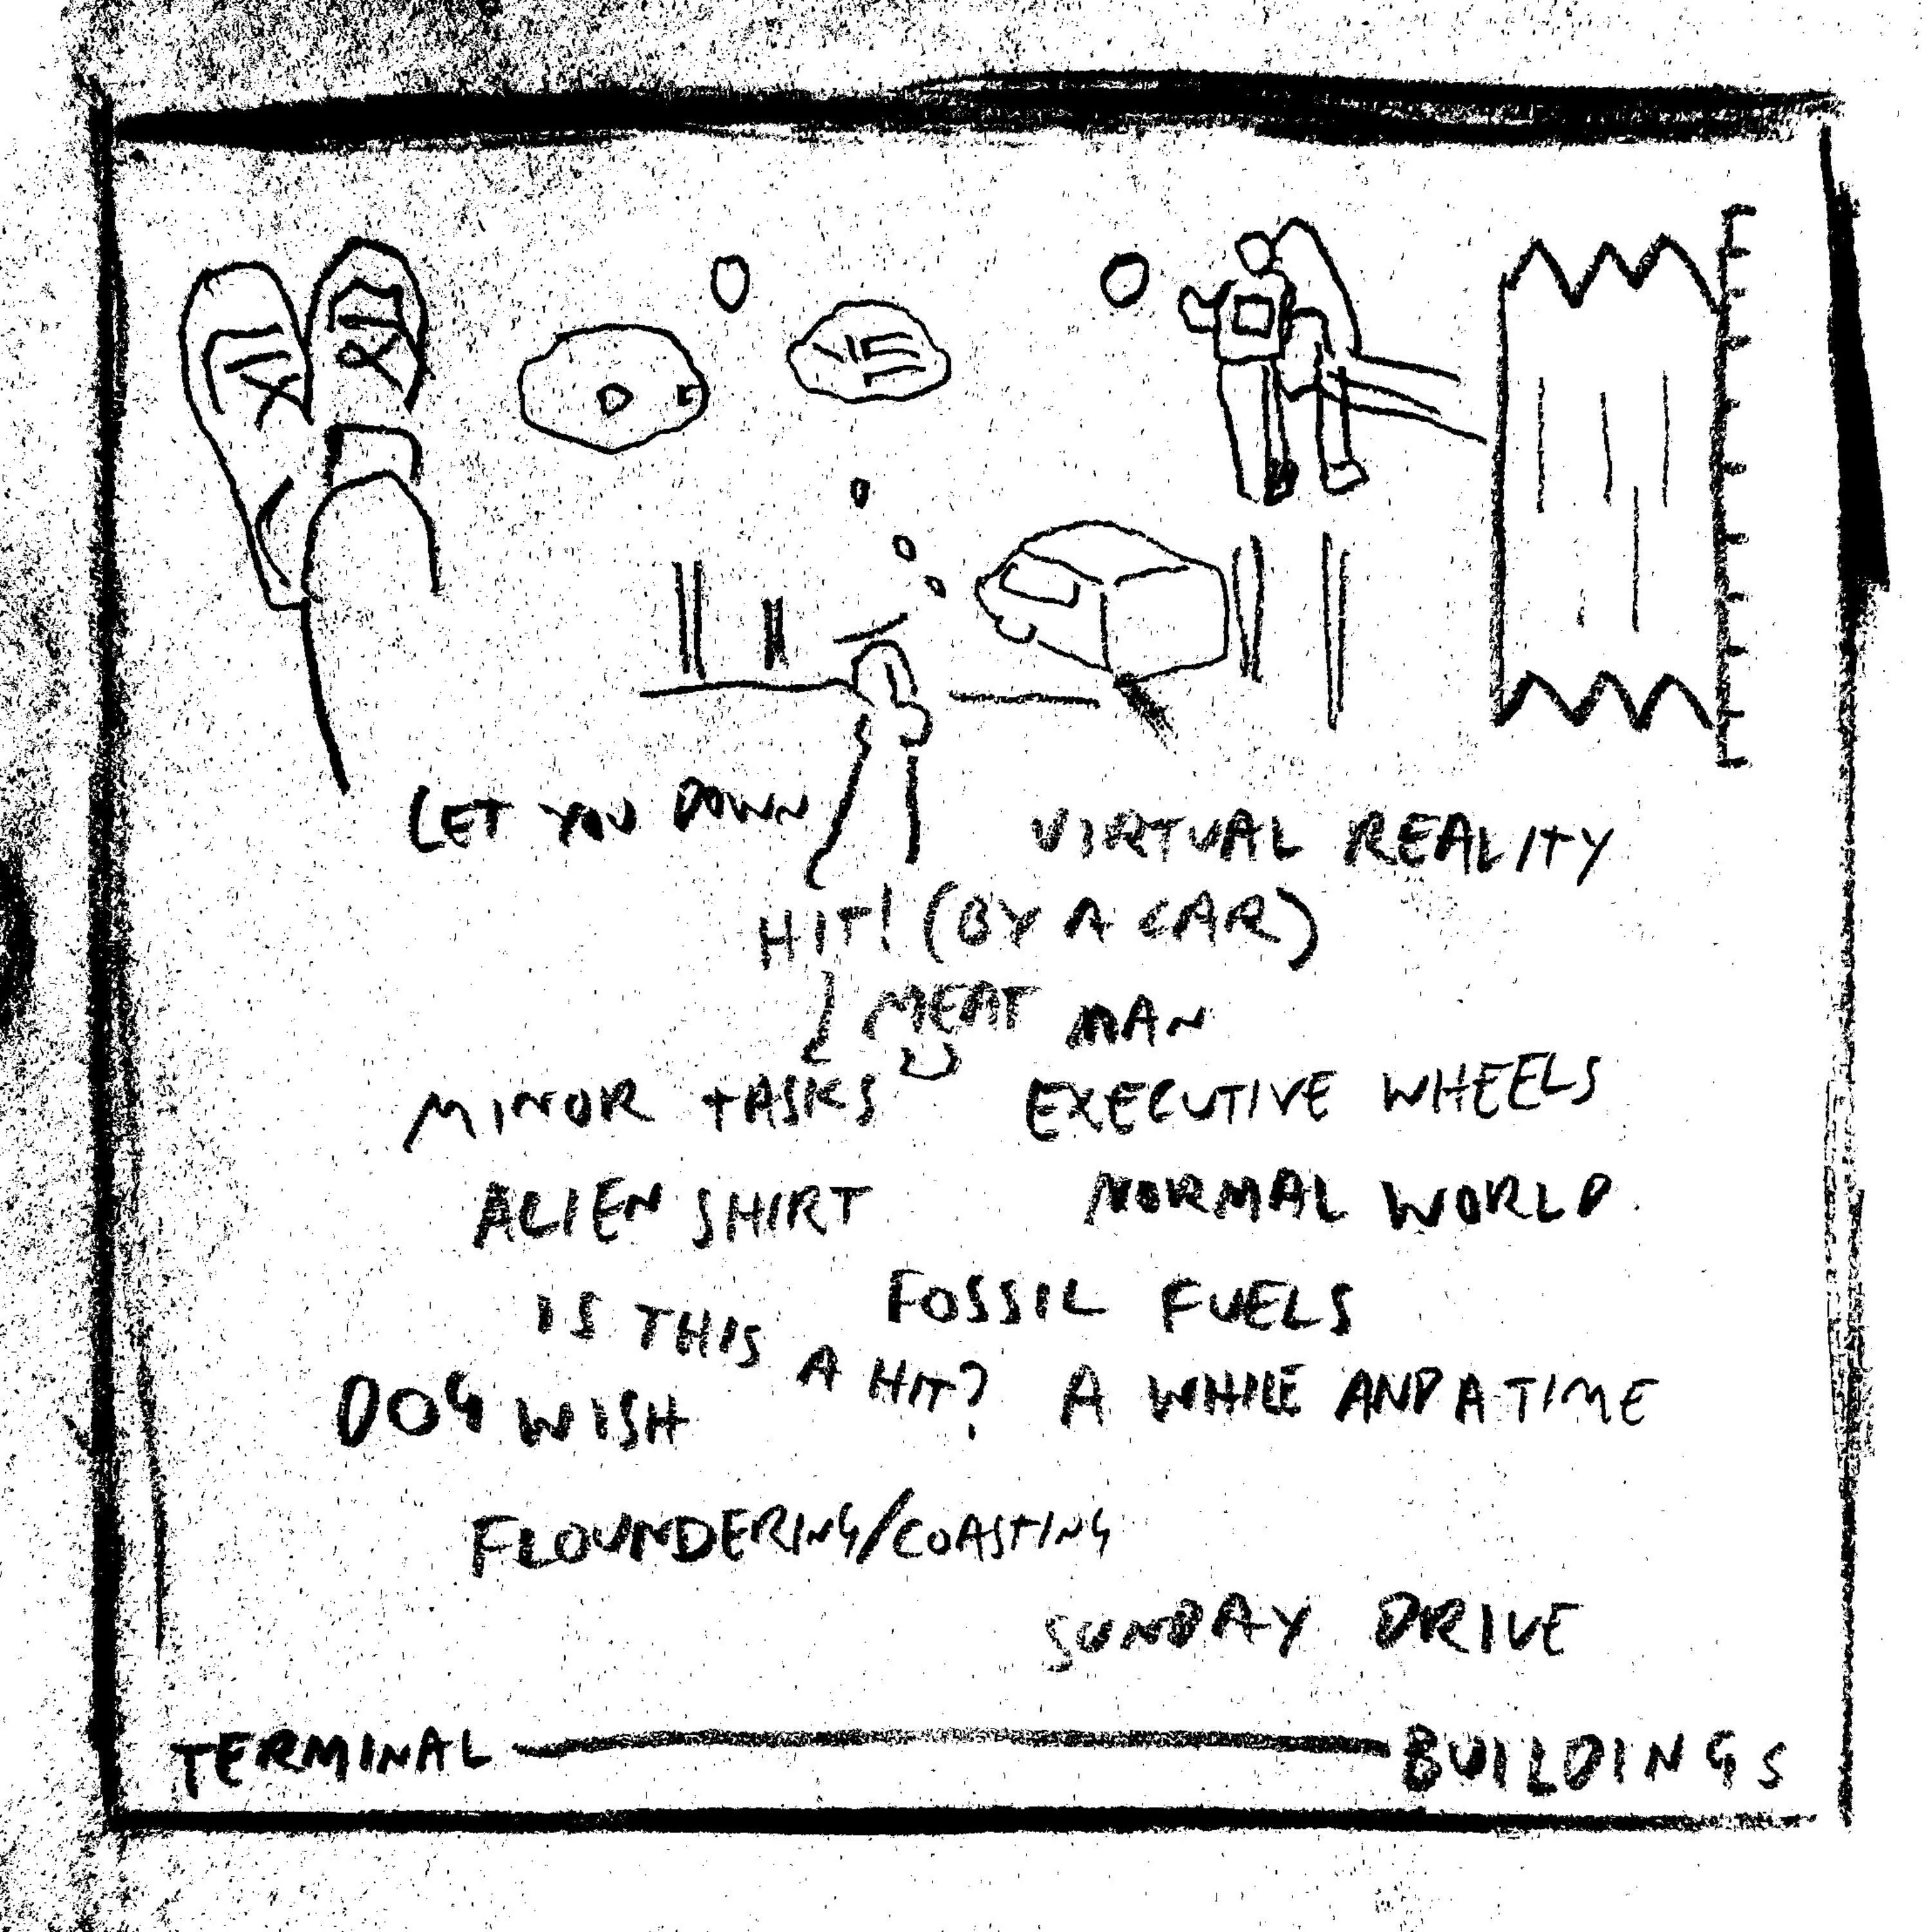 LET YOU DOWN
VIRTUAL REALITY
HIT! (BY A CAR)
MEAT MAN
MINOR TASKS
EXECUTIVE WHEELS
ALIEN SHIRT
NORMAL WORLD
FOSSIL FUELS
IS THIS A HIT?
DOG WISH
A WHILE AND A TIME
FLOUNDERING/COASTING
SUNDAY DRIVE
TERMINAL — BUILDINGS